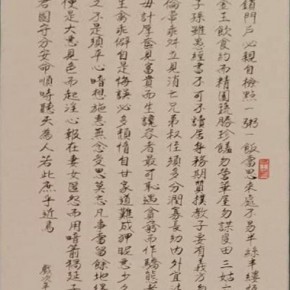 鎖門戶必親自檢點一粥一飯當思來處不易半絲半縷恆
金玉飲食約而精園蔬勝珍饈勿營華屋勿謀良田三姑六
子孫雖愚經書不可不讀居身務期質樸教子要有義方勿
倫常乖舛立見消亡兄弟叔侄須多分潤寡長幼內外宜法
毋計厚奩見富貴而生讒容者最可恥遇貧窮而作驕態者
生矣乖僻自是悔誤必多頹惰自甘家道難成狎暱惡少久
之不是須平心暗想施惠無念受恩莫忘凡事當留餘地得
便是大惡見色而起淫心報在妻女匿怨而用暗箭禍延子
君國守分安命順時聽天為人若此庶乎近焉